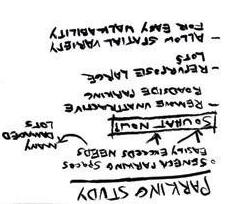 PARKING STUDY
SENECA PARKING SPACES
EASILY EXCEEDS NEEDS
MANY
DAMAGED
LOTS
- REMOVE UNATTRACTIVE
ROADSIDE PARKING
- REPURPOSE LARGE
LOTS
- ALLOW SPATIAL VARIETY
FOR EASY WALK-ABILITY